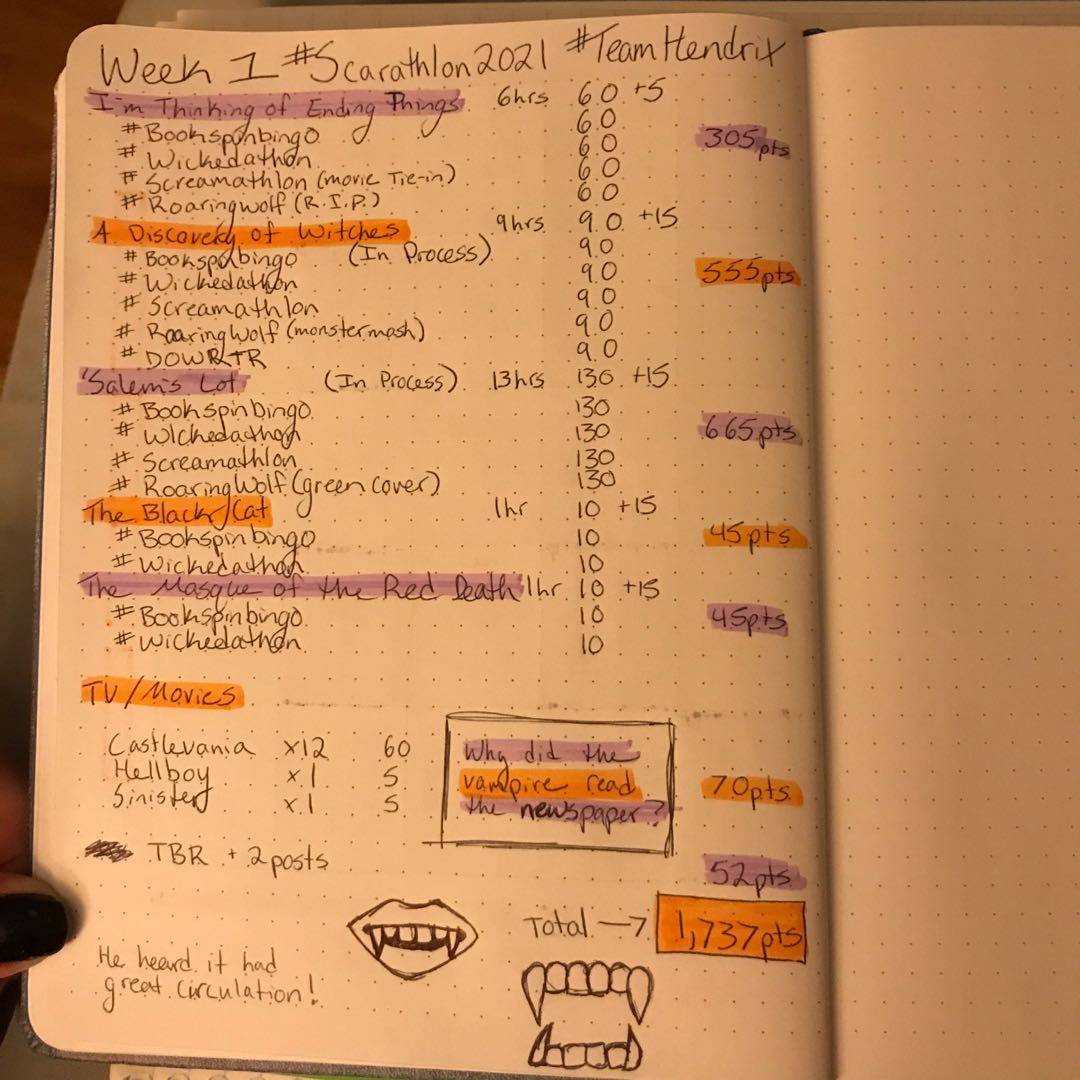 Week 1 #Scarathlon2021 #TeamHendrix
I'm Thinking of Ending Things 6hrs 60 +5
#Bookspinbingo 60
#Wickedathon 60 305pts
#Screamathlon (movie Tie-in) 60
#Roaringwolf (R.I.P.) 60
A Discovery of Witches 9hrs 90 +15
#Bookspinbingo (In Process) 90
#Wickedathon 90 555pts
#Screamathlon 90
#RoaringWolf (monstermash) 90
#DOWRTR 90
'Salem's Lot (In Process) 13hrs 130 +15
#Bookspinbingo 130
#Wickedathon 130 665pts
#Screamathlon 130
#RoaringWolf (green cover) 130
The Black Cat 1hr 10 +15
#Bookspinbingo 10 45pts
#Wickedathon 10
The Masque of the Red Death 1hr 10 +15
#Bookspinbingo 10 45pts
#Wickedathon 10
TV/Movies
Castlevania x12 60
Hellboy x1 5
Sinister x1 5
Why did the
vampire read
the newspaper?
70pts
TBR + 2 posts
52pts
Total → 1,737pts
He heard it had
great circulation!